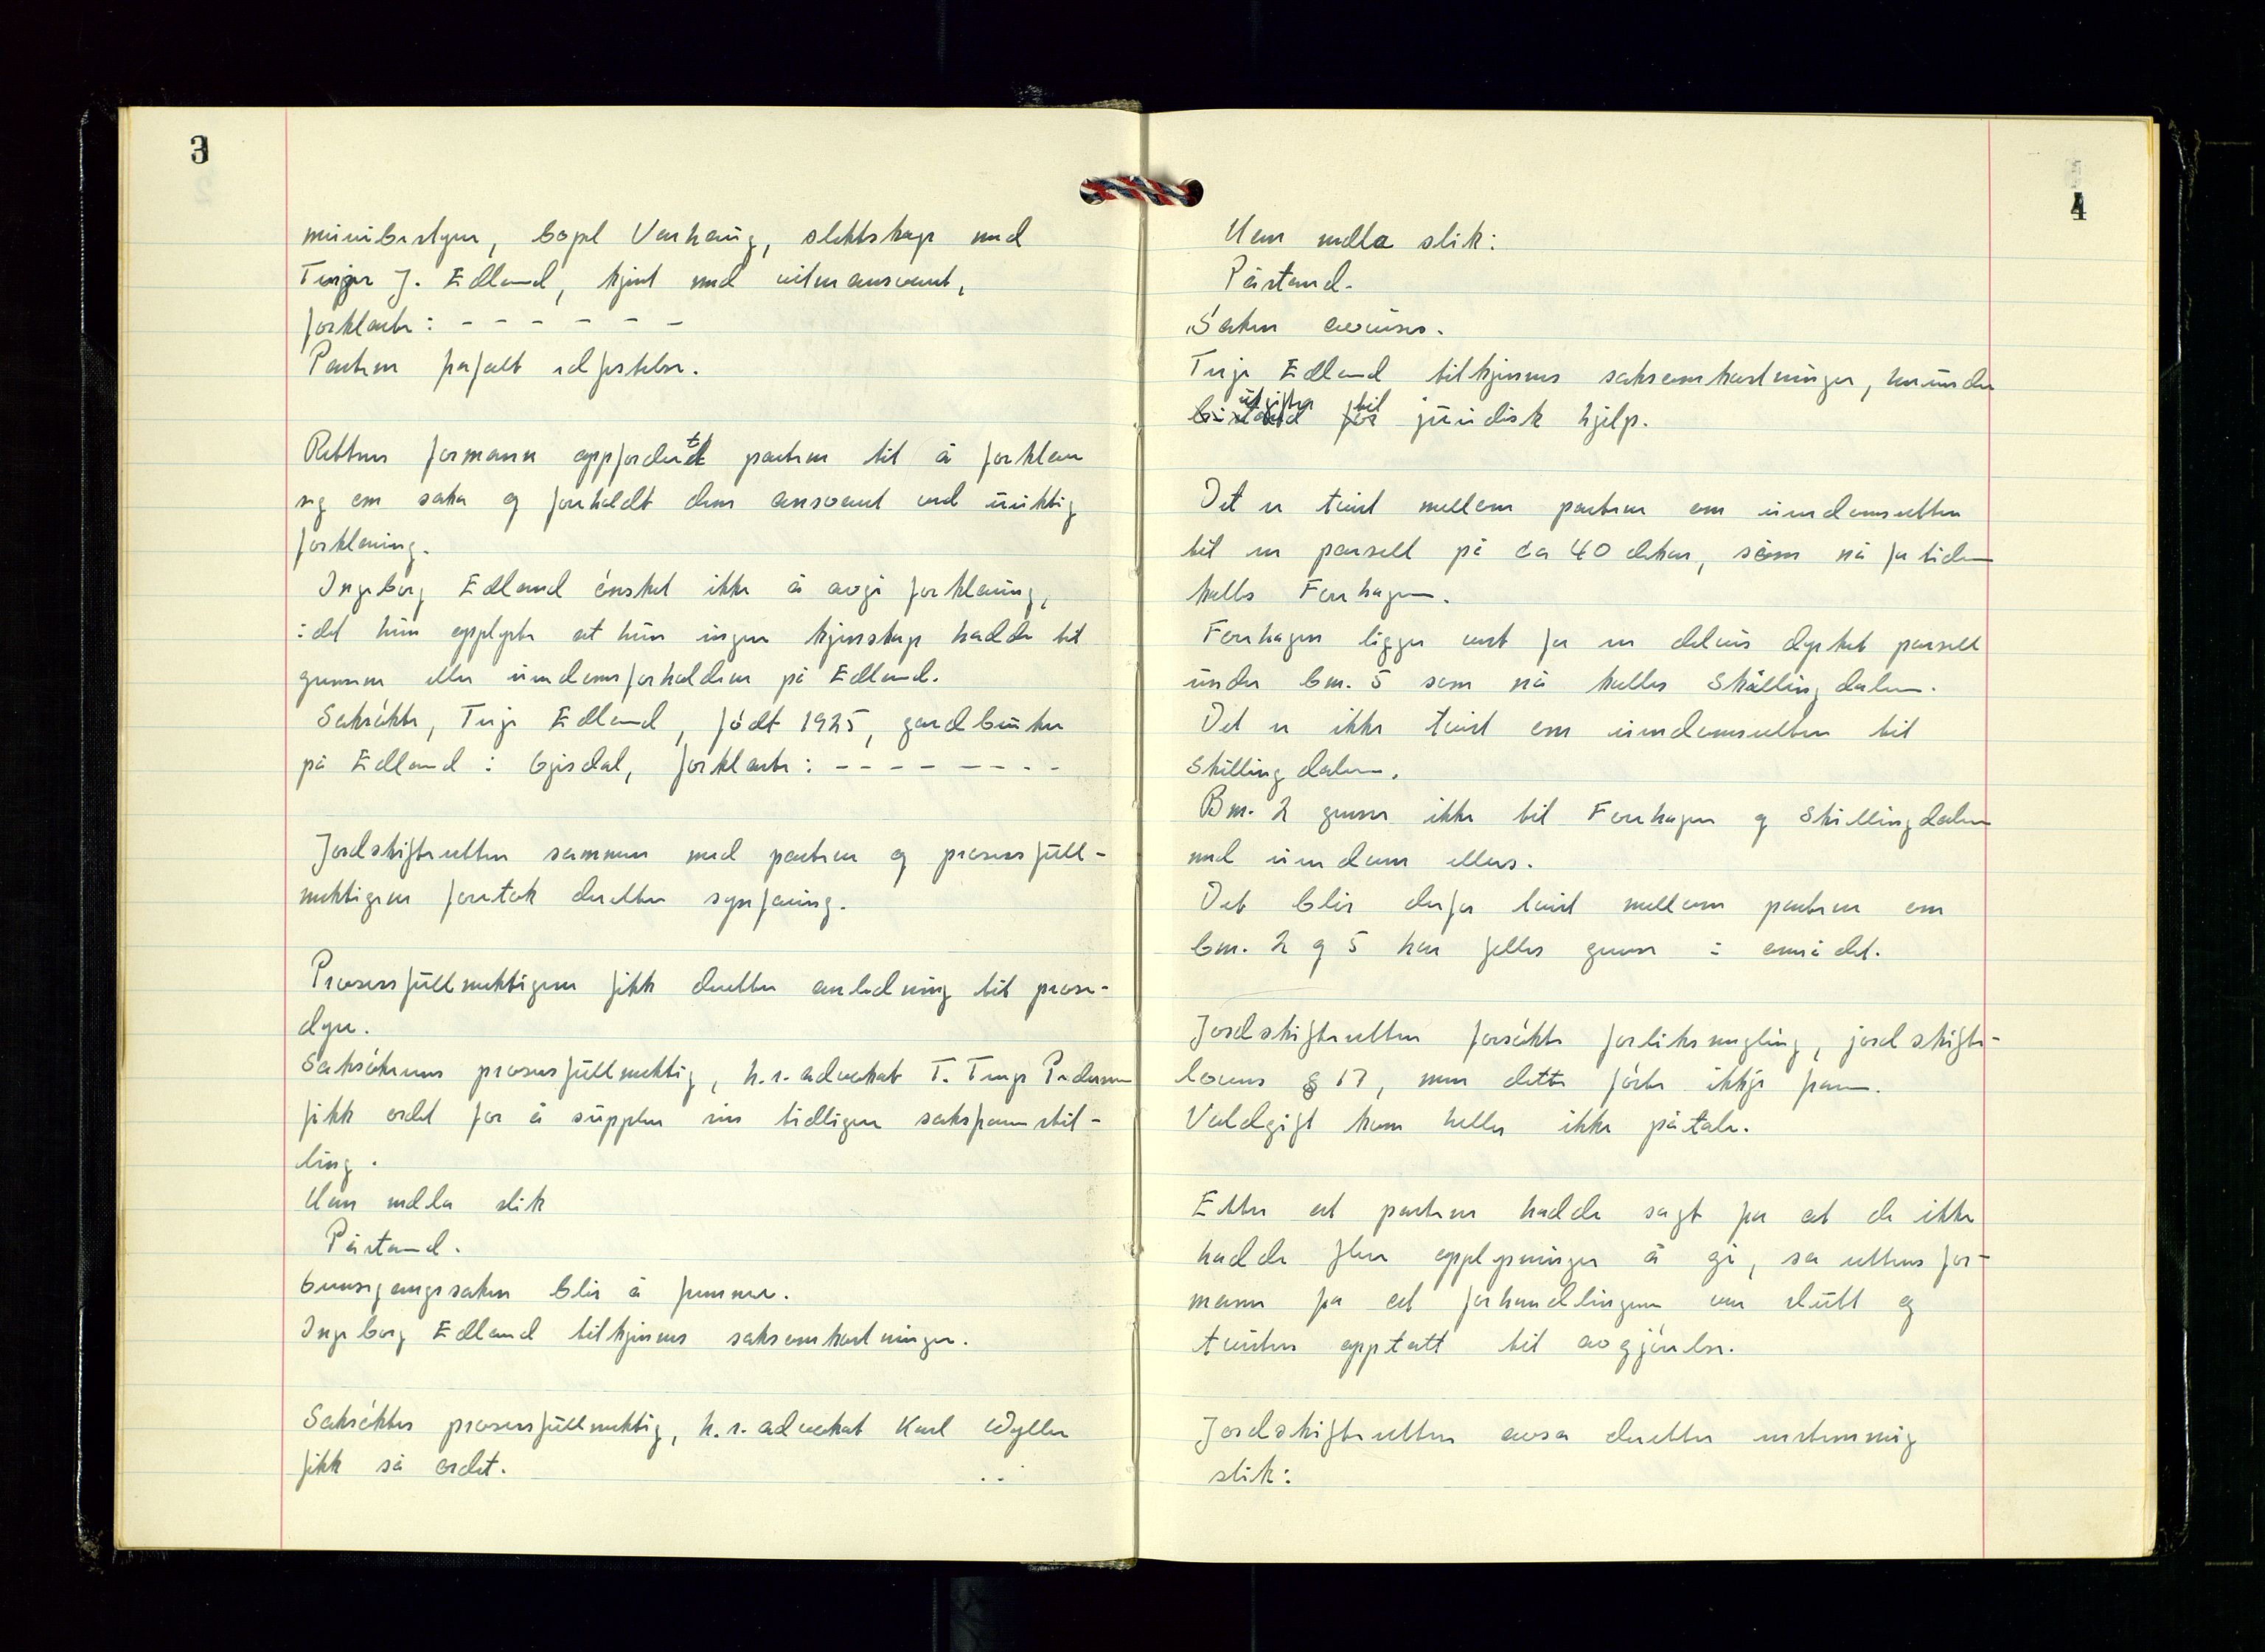 3
meieribestyrer, bopel Varhaug, slektskap med
Terje J. Edland, kjent med vitneansvaret,
forklarte: - - - - - - -
Partene frafalt edfestelse.
Rettens formann oppfordret partene til å forklare
seg om saka og foreholdt dem ansvaret ved uriktig
forklaring.
Ingeborg Edland ønsket ikke å avgi forklaring,
idet hun opplyste at hun ingen kjenskap hadde til
grensene eller eiendomsforholdene på Edland.
Saksøkte, Terje Edland, født 1925, gardbruker
på Edland i Gjesdal, forklarte: - - - - - - - -
Jordskifteretten sammen med partene og prosessfull-
mektigene foretok deretter synfaring.
Prosessfullmektigene fikk deretter anledning til prose-
dyre.
Saksøkerens prosessfullmektig, h.r.advokat T. Terje Pedersen
fikk ordet for å supplere sin tidligere saksframstil-
ling.
Han nedla slik
Påstand.
Grensegangssaken blir å fremme.
Ingeborg Edland tilkjennes saksomkostninger.
Saksøktes prosessfullmektig, h.r.advokat Karl Wyller
fikk så ordet.
4
Han nedla slik:
Påstand.
Saken avvises.
Terje Edland tilkjennes saksomkostninger, herunder
utgifter til juridisk hjelp.
Det er tvist mellom partene om eiendomsretten
til en parsell på ca 40 dekar, som nå for tiden
kalles Forrhagen.
Forrhagen ligger vest for en delvis dyrket parsell
under bnr. 5 som nå kalles Skillingdalen.
Det er ikke tvist om eiendomsretten til
Skillingdalen.
Bnr. 2 grenser ikke til Forrhagen og Skillingdalen
med eiendom ellers.
Det blir derfor tvist mellom partene om
bnr. 2 og 5 har felles grense i området.
Jordskifteretten forsøkte forliksmegling, jordskifte-
lovens § 17, men dette førte ikkje fram.
Voldgift kom heller ikke på tale.
Etter at partene hadde sagt fra at de ikke
hadde flere opplysninger å gi, sa rettens for-
mann fra at forhandlingene var slutt og
tvisten opptatt til avgjørelse.
Jordskifteretten avsa deretter enstemmig
slik: